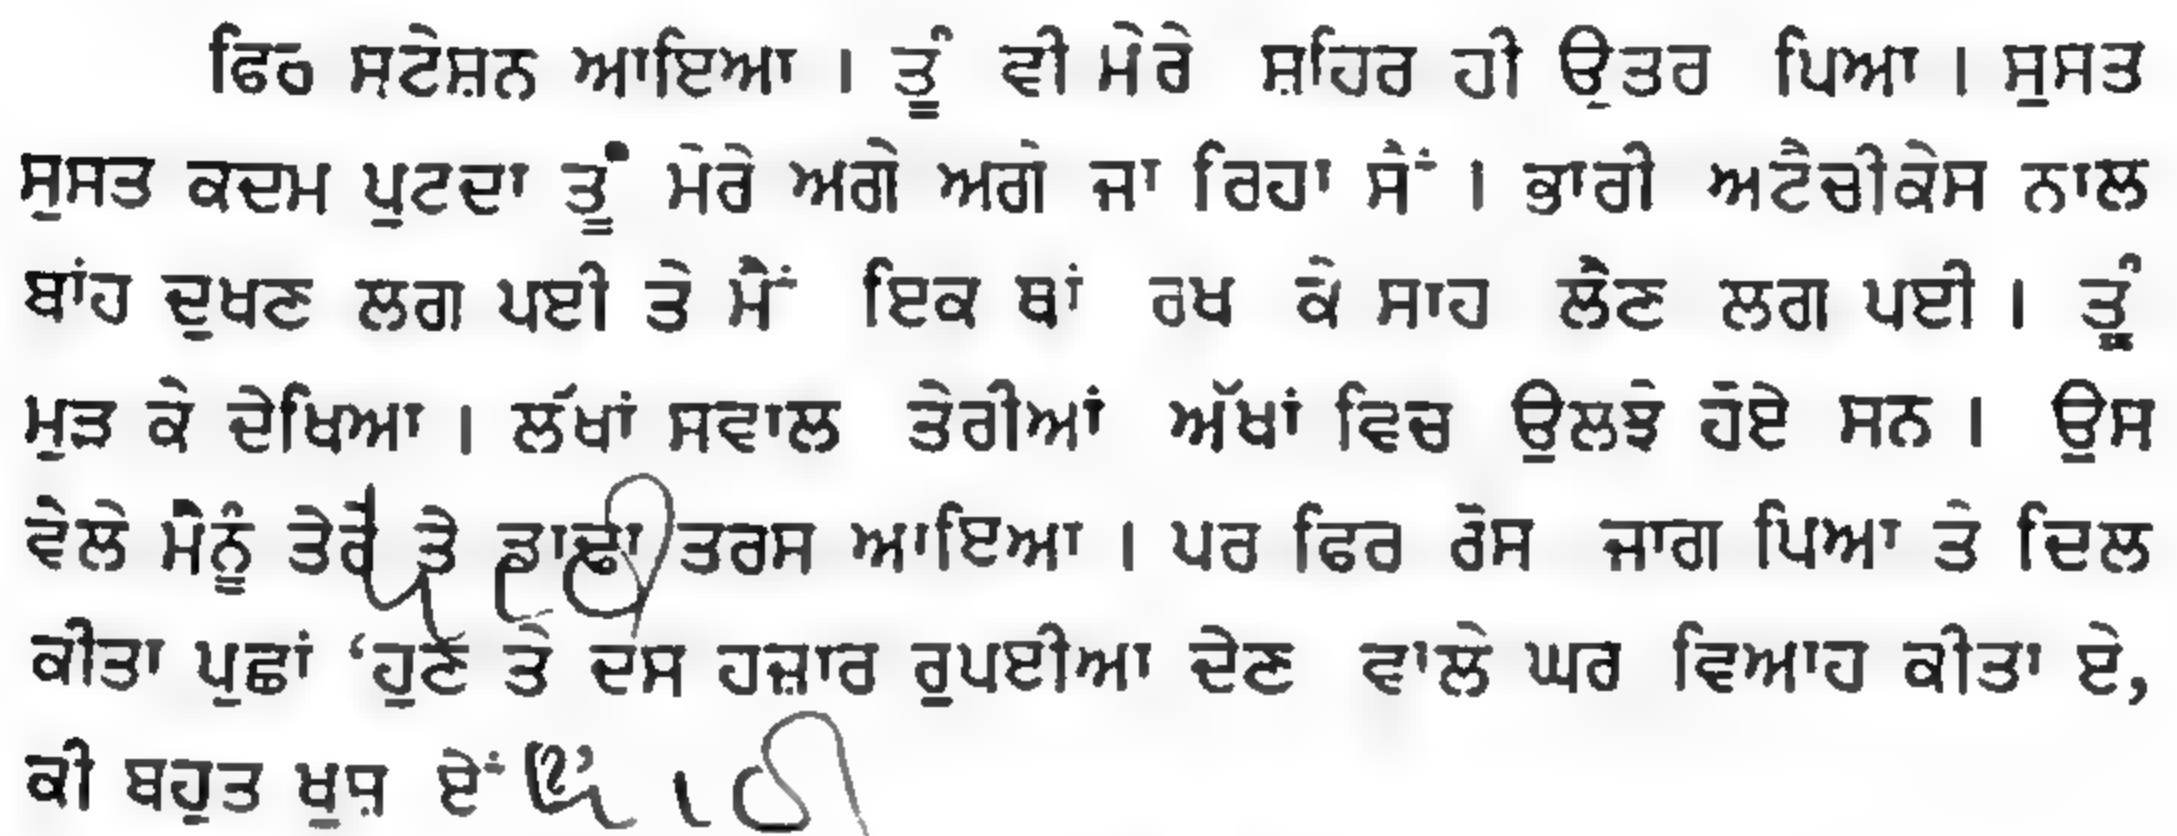 ਫਿਰ ਸਟੇਸ਼ਨ ਆਇਆ । ਤੂੰ ਵੀ ਮੇਰੇ ਸ਼ਹਿਰ ਹੀ ਉਤਰ ਪਿਆ । ਸੁਸਤ
ਸੁਸਤ ਕਦਮ ਪੁਟਦਾ ਤੂੰ ਮੇਰੇ ਅਗੇ ਅਗੇ ਜਾ ਰਿਹਾ ਸੈਂ । ਭਾਰੀ ਅਟੈਚੀਕੇਸ ਨਾਲ
ਬਾਂਹ ਦੁਖਣ ਲਗ ਪਈ ਤੇ ਮੈਂ ਇਕ ਥਾਂ ਰਖ ਕੇ ਸਾਹ ਲੈਣ ਲਗ ਪਈ । ਤੂੰ
ਮੁੜ ਕੇ ਦੇਖਿਆ । ਲੱਖਾਂ ਸਵਾਲ ਤੇਰੀਆਂ ਅੱਖਾਂ ਵਿਚ ਉਲਝੇ ਹੋਏ ਸਨ । ਉਸ
ਵੇਲੇ ਮੈਨੂੰ ਤੇਰੇ ਤੇ ਡਾਢਾ ਤਰਸ ਆਇਆ । ਪਰ ਫਿਰ ਰੋਸ ਜਾਗ ਪਿਆ ਤੇ ਦਿਲ
ਕੀਤਾ ਪੁਛਾਂ ‘ਹੁਣ ਤੇ ਦਸ ਹਜ਼ਾਰ ਰੁਪਈਆ ਦੇਣ ਵਾਲੇ ਘਰ ਵਿਆਹ ਕੀਤਾ ਏ,
ਕੀ ਬਹੁਤ ਖੁਸ਼ ਏਂ